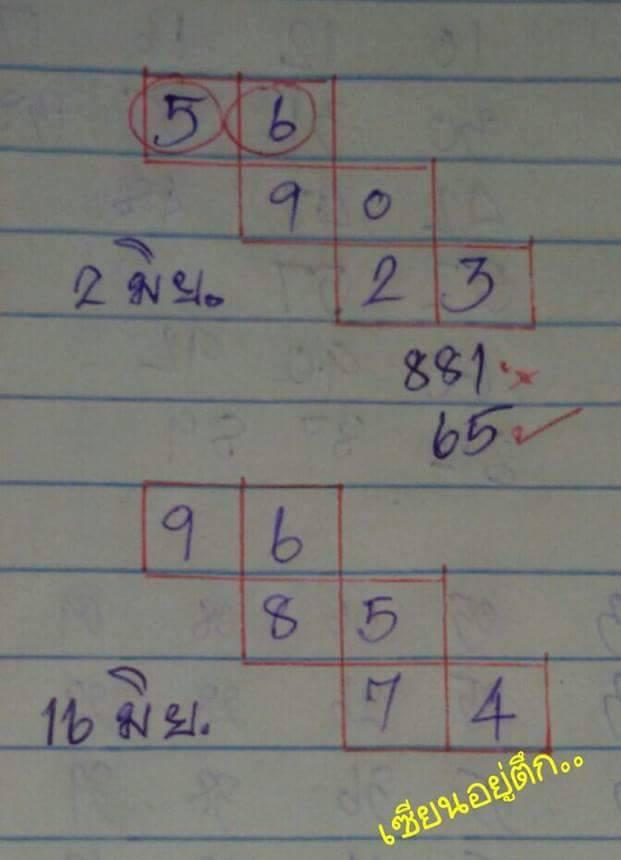 5 6
9 0
2 มิย. 2 3
881 ×
65 ✓
9 6
8 5
16 มิย. 7 4
เซียนอยู่ตึก..